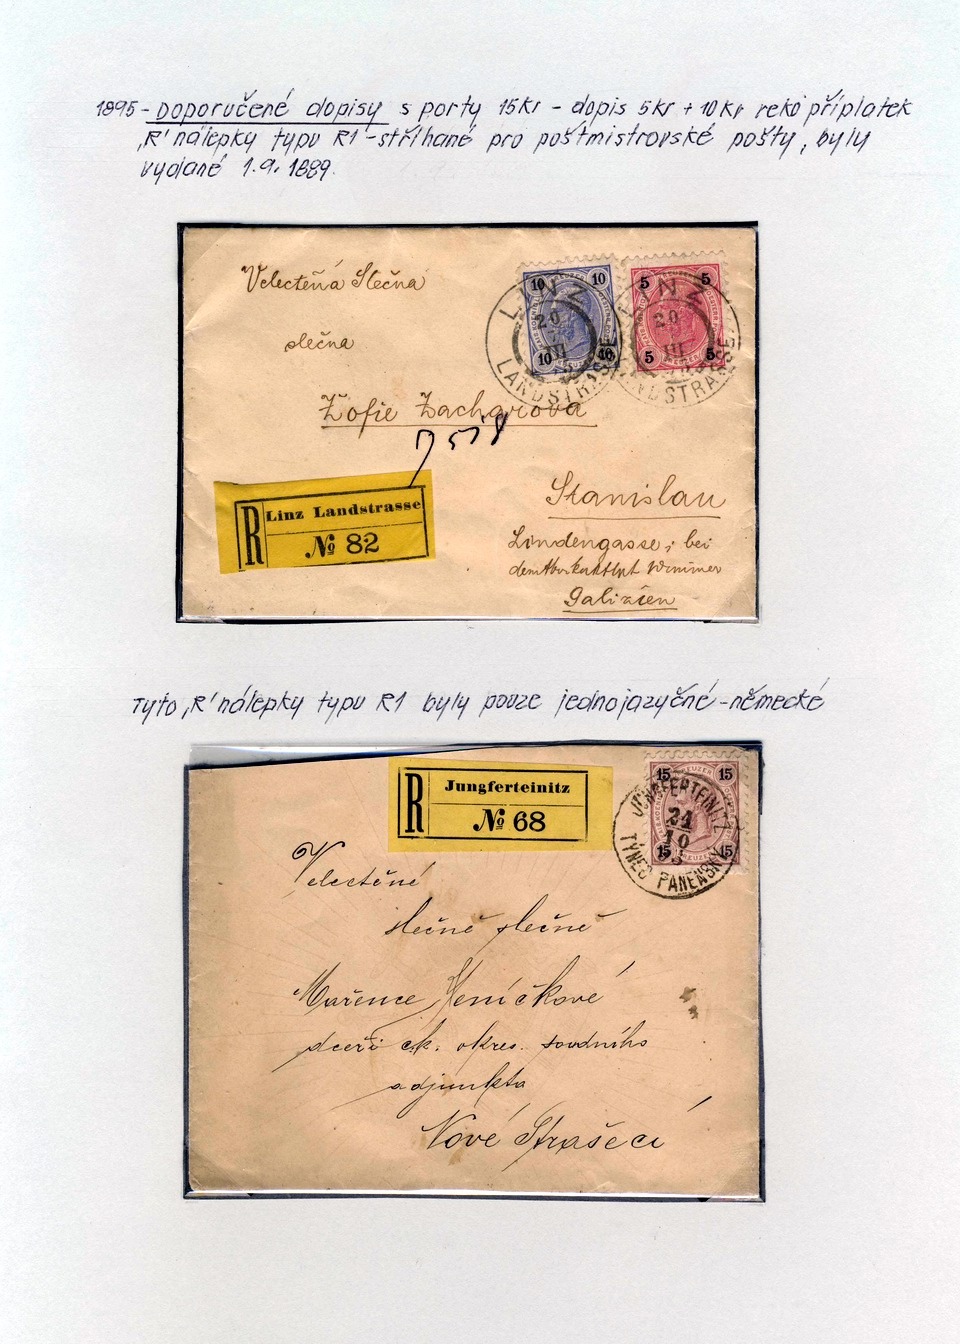 1895 - Doporučené dopisy s porty 15kr - dopis 5kr + 10kr reko příplatek
„R" nálepky typu R1 - stříhané pro poštmistrovské pošty, byly
vydané 1.9. 1889.
Velectěná Slečna
slečna
Žofie Zacharova
10 10
10 10
5 5
5 5
LINZ
20
III
LANDSTRASSE
LINZ
20
III
LANDSTRASSE
R Linz Landstrasse
№ 82
Stanislau
Lindengasse, bei
Galizien
Tyto „R" nálepky typu R1 byly pouze jednojazyčné - německé
R Jungferteinitz
№ 68
15 15
15 15
JUNGFERTEINITZ
10
TÝNEC PANENSKÝ
Velectěné
slečně slečně
Mařence Heníčkové
dceři ck. okres. soudního
adjunkta
Nové Strašecí